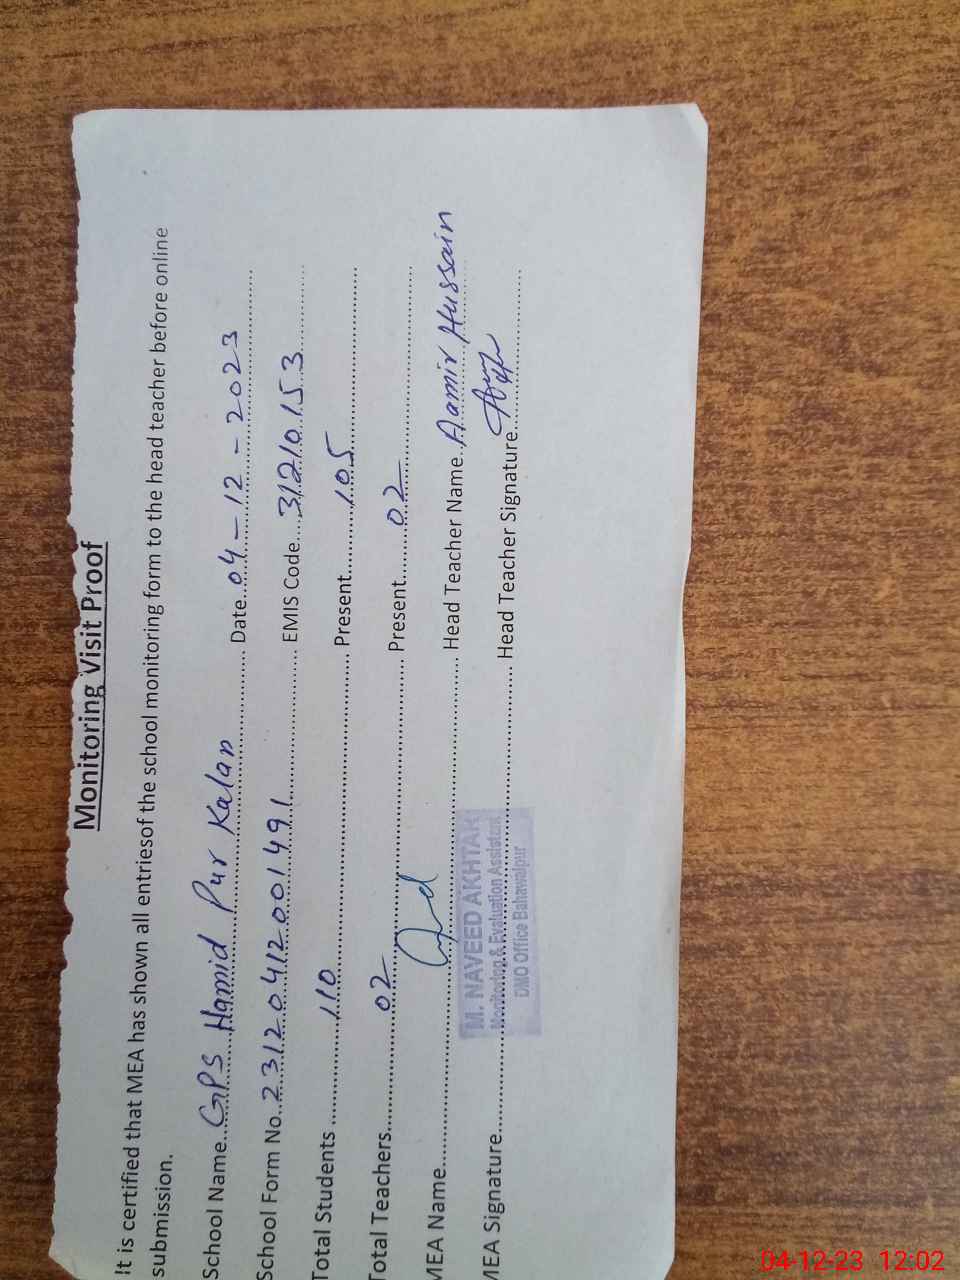 Monitoring Visit Proof
It is certified that MEA has shown all entriesof the school monitoring form to the head teacher before online
submission.
School Name...GPS Hamid Pur Kalan........ Date...04-12-2023........
School Form No...23120412001491........ EMIS Code....31210153........
Total Students........110........ Present........105........
Total Teachers........02........ Present........02........
MEA Name........ Head Teacher Name..Aamir Hussain
M. NAVEED AKHTAR
Monitoring & Evaluation Assistant
DMO Office Bahawalpur
MEA Signature........ Head Teacher Signature........
04-12-23 12:02